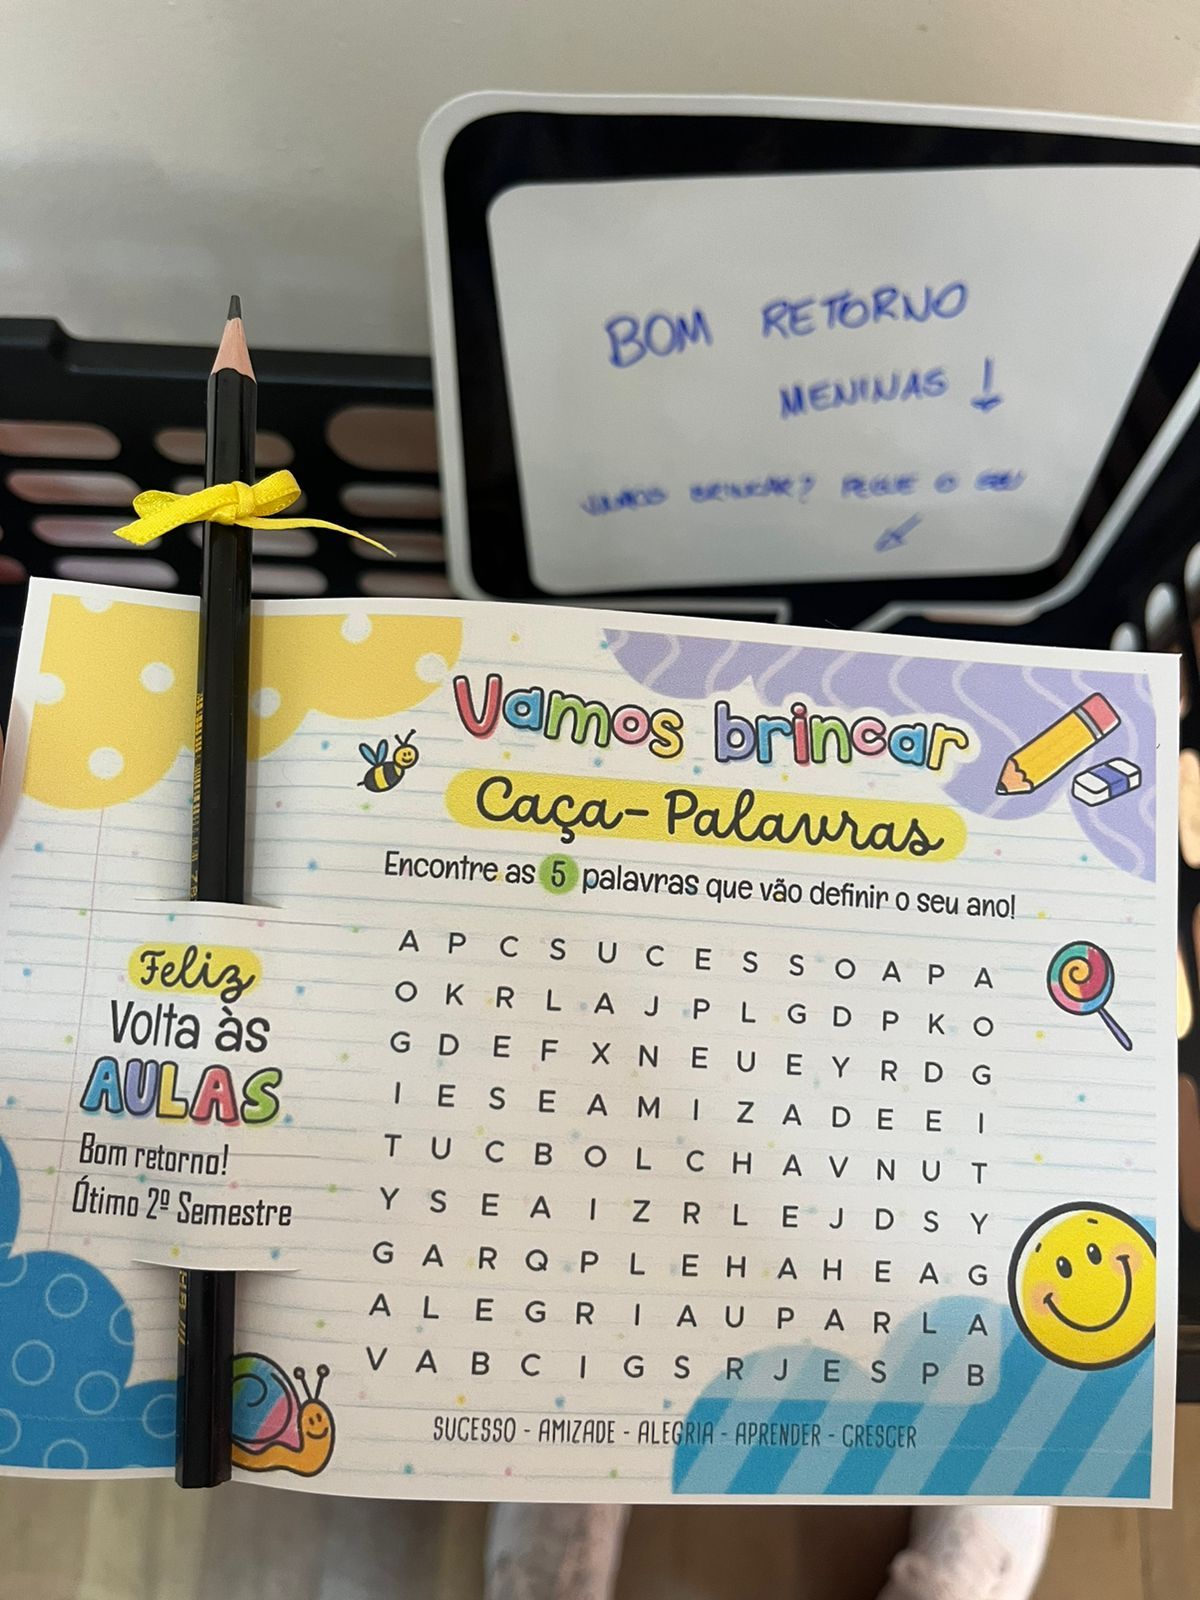 BOM RETORNO
MENINAS!
VAMOS BRINCAR? PEGUE O SEU
Vamos brincar
Caça-Palavras
Encontre as 5 palavras que vão definir o seu ano!
A P C S U C E S S O A P A
O K R L A J P L G D P K O
G D E F X N E U E Y R D G
I E S E A M I Z A D E E I
T U C B O L C H A V N U T
Y S E A I Z R L E J D S Y
G A R Q P L E H A H E A G
A L E G R I A U P A R L A
V A B C I G S R J E S P B
SUCESSO - AMIZADE - ALEGRIA - APRENDER - CRESCER
Feliz
Volta às
AULAS
Bom retorno!
Ótimo 2º Semestre